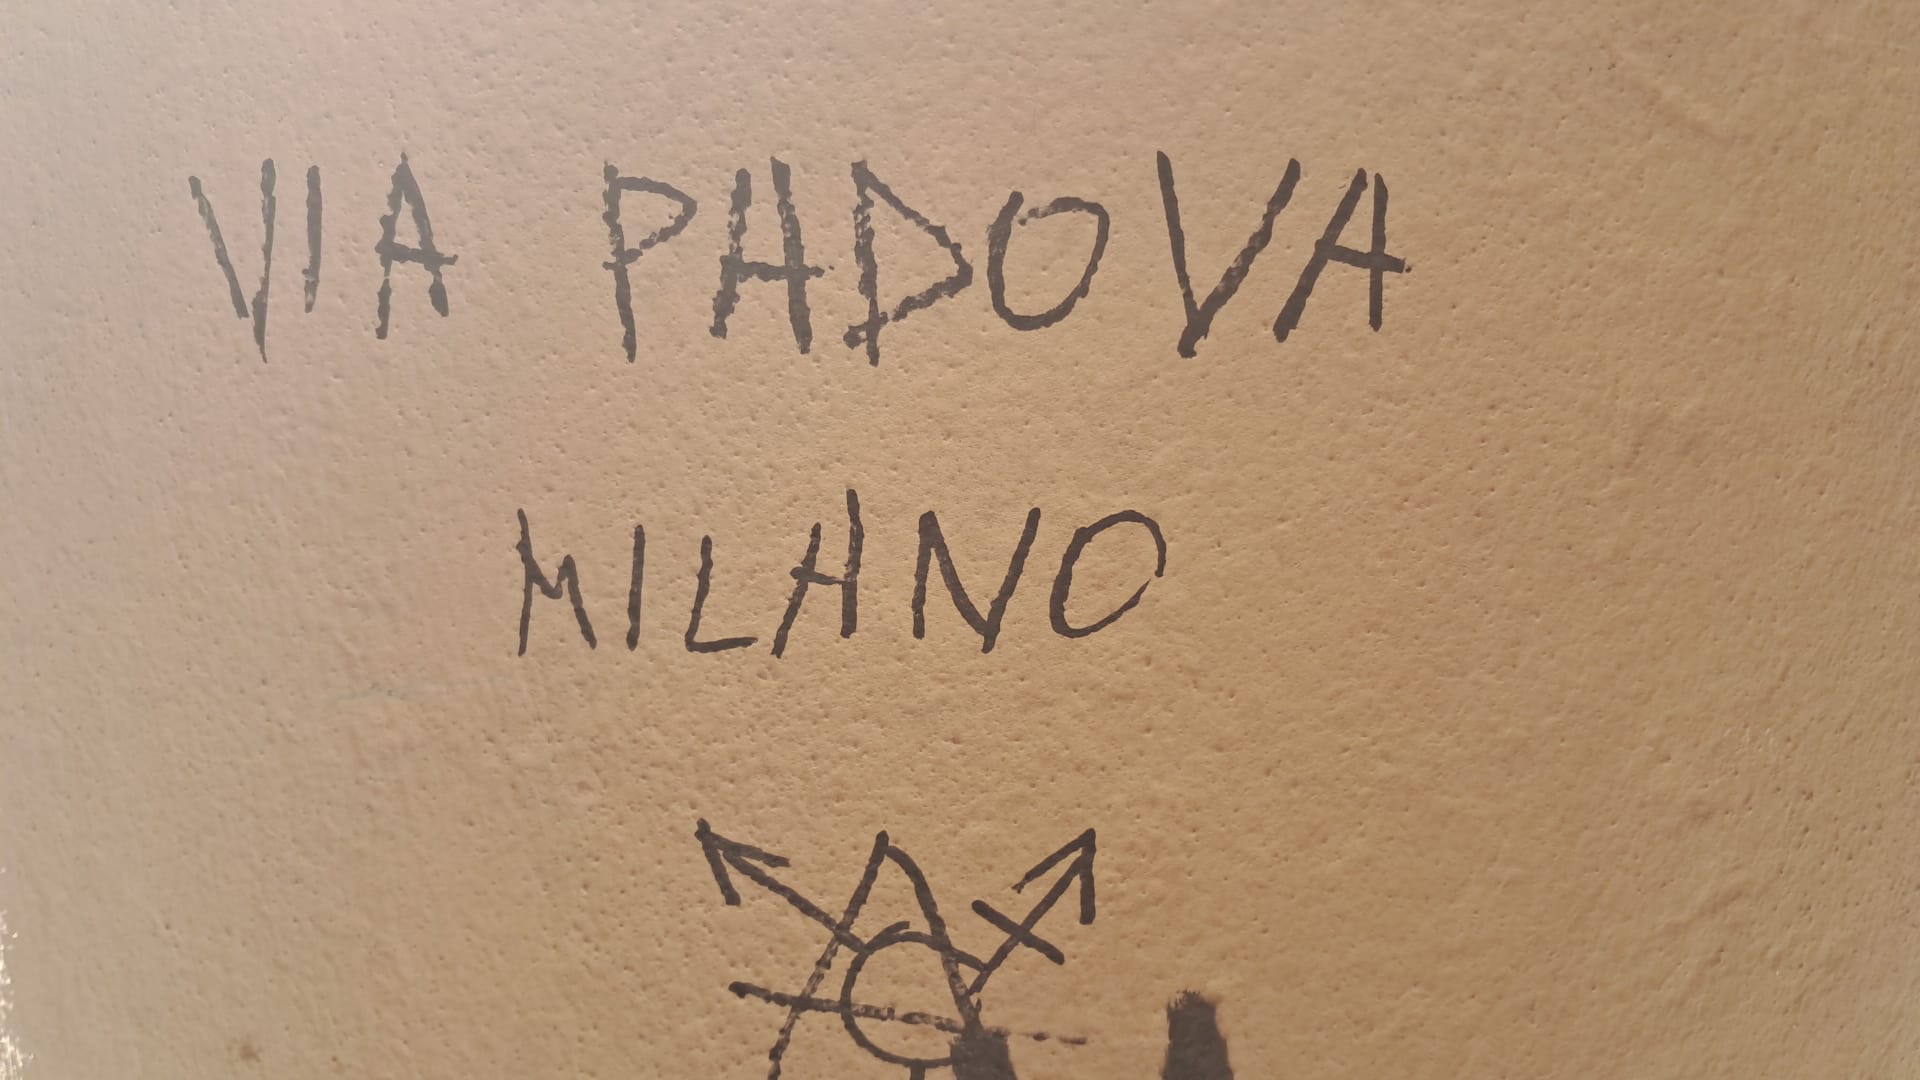 VIA PADOVA
MILANO